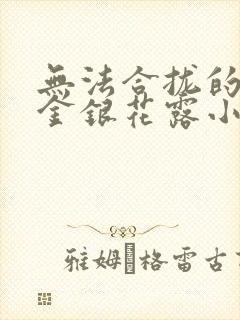 無法合拢的
金銀花露小
雅姆 格雷古